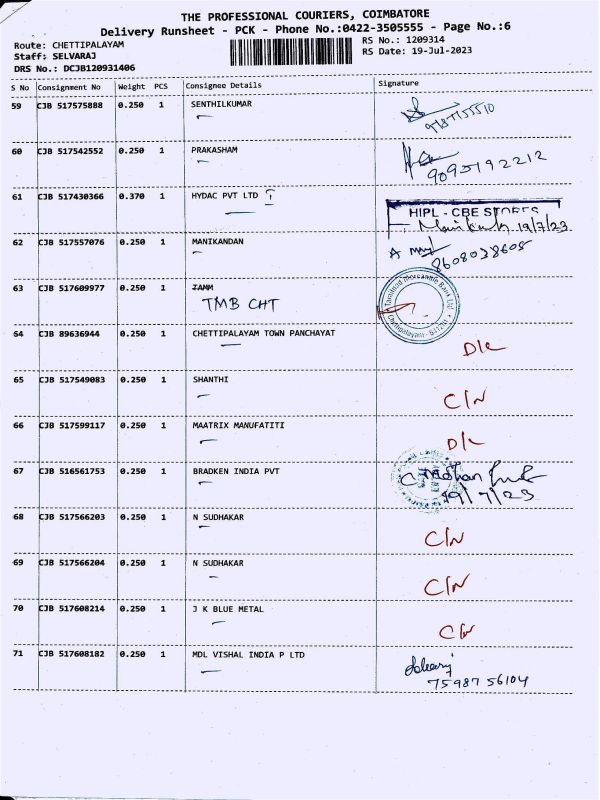 THE PROFESSIONAL COURIERS, COIMBATORE
Delivery Runsheet - PCK - Phone No.:0422-3505555 - Page No.:6
Route: CHETTIPALAYAM RS No.: 1209314
Staff: SELVARAJ RS Date: 19-Jul-2023
DRS No.: DCJB120931406
S No Consignment No Weight PCS Consignee Details Signature
59 CJB 517575888 0.250 1 SENTHILKUMAR
60 CJB 517542552 0.250 1 PRAKASHAM
9095192212
61 CJB 517430366 0.370 1 HYDAC PVT LTD
HIPL - CBE STORES
19/7/23
62 CJB 517557076 0.250 1 MANIKANDAN
8608038605
63 CJB 517609977 0.250 1 TAMM
TMB CHT
Tamilnad Mercantile Bank Ltd.
Chettipalayam - 641201
64 CJB 89636944 0.250 1 CHETTIPALAYAM TOWN PANCHAYAT
D/L
65 CJB 517549083 0.250 1 SHANTHI
C/N
66 CJB 517599117 0.250 1 MAATRIX MANUFATITI
D/L
67 CJB 516561753 0.250 1 BRADKEN INDIA PVT
19/7/23
68 CJB 517566203 0.250 1 N SUDHAKAR
C/N
69 CJB 517566204 0.250 1 N SUDHAKAR
C/N
70 CJB 517608214 0.250 1 J K BLUE METAL
C/N
71 CJB 517608182 0.250 1 MDL VISHAL INDIA P LTD
75987 56104